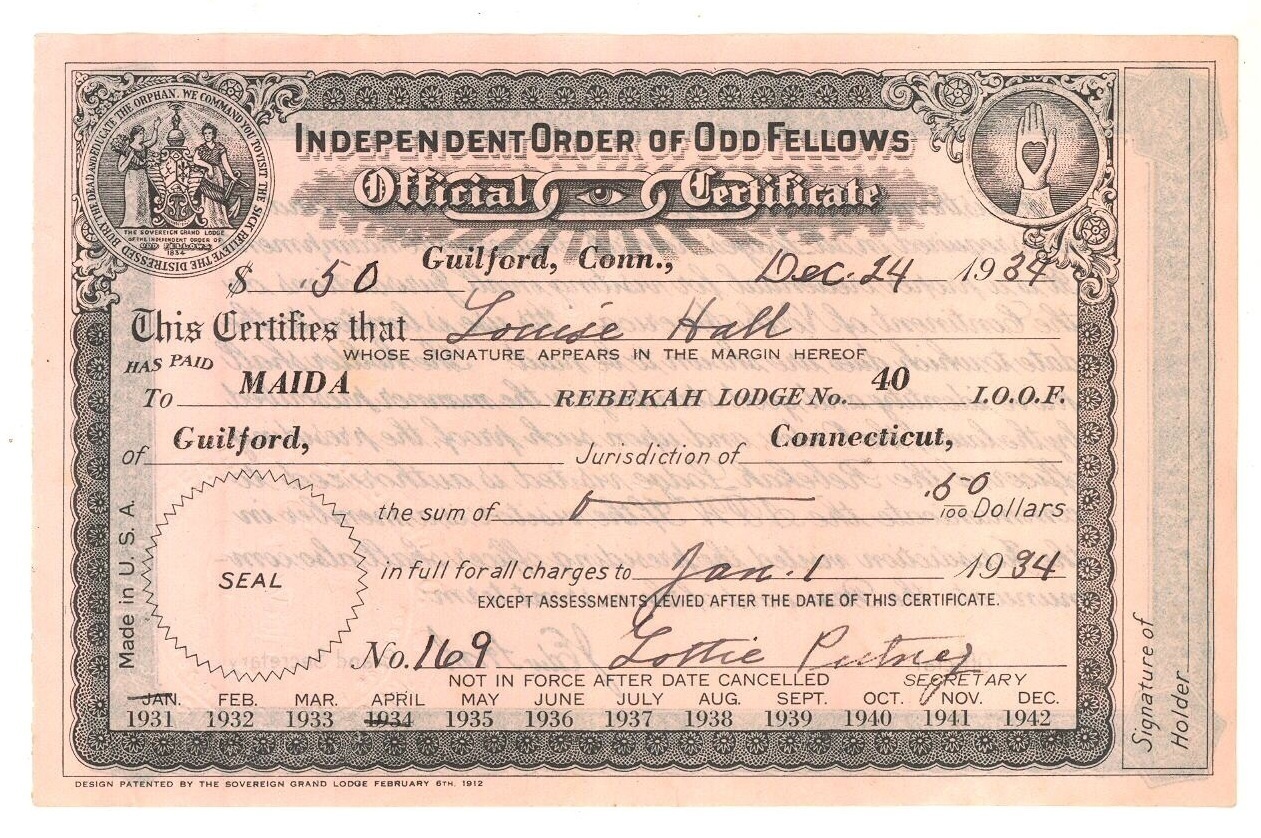 BURY THE DEAD AND EDUCATE THE ORPHAN. WE COMMAND YOU TO VISIT THE SICK RELIEVE THE DISTRESSED
THE SOVEREIGN GRAND LODGE
OF THE INDEPENDENT ORDER OF
ODD FELLOWS
1834
INDEPENDENT ORDER OF ODD FELLOWS
Official Certificate
$ .50 Guilford, Conn., Dec. 24 1934
This Certifies that Louise Hall
WHOSE SIGNATURE APPEARS IN THE MARGIN HEREOF
HAS PAID
To MAIDA REBEKAH LODGE No. 40 I.O.O.F.
of Guilford, Jurisdiction of Connecticut,
the sum of .50/100 Dollars
in full for all charges to Jan. 1 1934
EXCEPT ASSESSMENTS LEVIED AFTER THE DATE OF THIS CERTIFICATE.
SEAL
No. 169 Lottie Putney
NOT IN FORCE AFTER DATE CANCELLED SECRETARY
JAN. FEB. MAR. APRIL MAY JUNE JULY AUG. SEPT. OCT. NOV. DEC.
1931 1932 1933 1934 1935 1936 1937 1938 1939 1940 1941 1942
Made in U.S.A.
Signature of
Holder
DESIGN PATENTED BY THE SOVEREIGN GRAND LODGE FEBRUARY 6TH, 1912